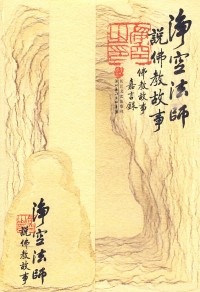 淨空法師
說佛教故事
佛教故事
嘉言錄
淨空法師
說佛教故事